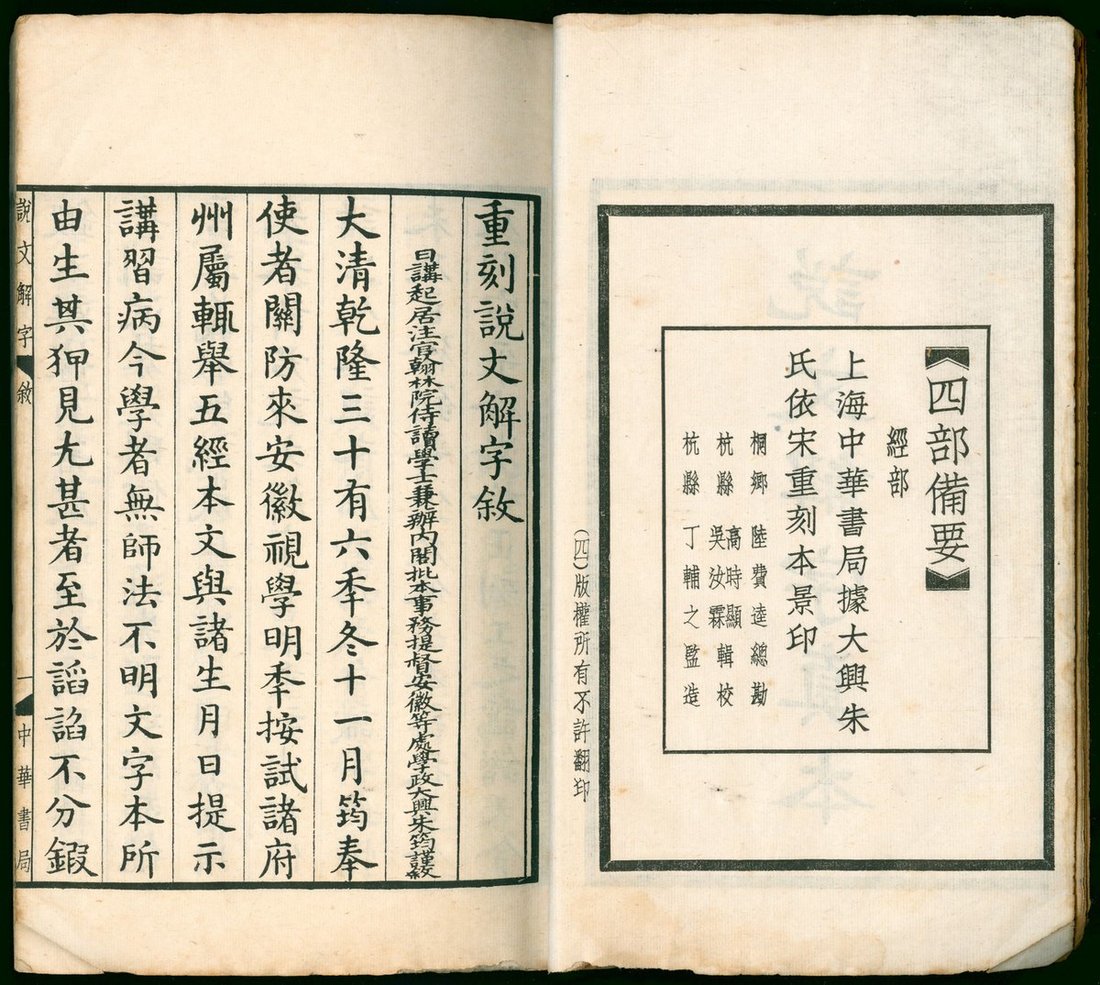 【四部備要】
經部
上海中華書局據大興朱
氏依宋重刻本景印
桐鄉 陸費逵總勘
杭縣 高時顯 吳汝霖 輯校
杭縣 丁輔之監造
(四)版權所有不許翻印
重刻說文解字敘
日講起居注官翰林院侍讀學士兼辦內閣批本事務提督安徽等處學政大興朱筠謹敘
大清乾隆三十有六秊冬十一月筠奉
使者關防來安徽視學明秊按試諸府
州屬輒舉五經本文與諸生月日提示
講習病今學者無師法不明文字本所
由生其狎見尢甚者至於謟諂不分鍜
說文解字敘 一 中華書局